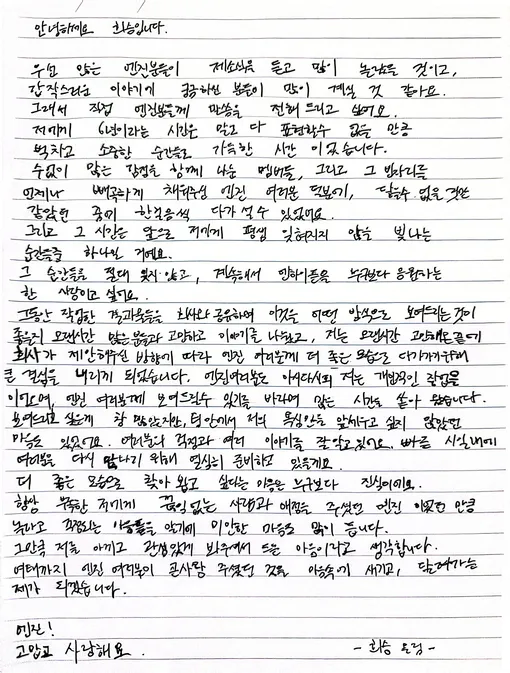 안녕하세요 희승입니다.
우선 많은 엔진분들이 제소식을 듣고 많이 놀랐을 것이고,
갑작스러운 이야기에 궁금하신 분들이 많이 계실 것 같아요.
그래서 직접 엔진분들께 말씀을 전해드리고 싶어요.
저에게 6년이라는 시간은 말로 다 표현할수 없을 만큼
벅차고 소중한 순간들로 가득한 시간 이었습니다.
수없이 많은 감정을 함께 나눈 멤버들, 그리고 그 빈자리를
언제나 빼곡하게 채워주신 엔진 여러분 덕분에, 닿을수 없을 것만
같았던 꿈에 한걸음씩 다가설 수 있었어요.
그리고 그 시간은 앞으로 저에게 평생 잊혀지지 않을 빛나는
순간들중 하나일 거에요.
그 순간들을 절대 잊지 않고, 계속해서 엔하이픈을 누구보다 응원하는
한 사람이고 싶어요.
그동안 작업한 결과물들을 회사와 공유하며 이것을 어떤 방식으로 보여드리는것이
좋은지 오랜시간 많은 분들과 고민하고 이야기를 나눴고, 저는 오랜시간 고민해온 끝에
회사가 제안해주신 방향에 따라 엔진 여러분께 더 좋은 모습으로 다가가기위해
큰 결심을 내리게 되었습니다. 엔진여러분도 아시다시피 저는 개인적인 작업을
이어오며, 엔진 여러분께 보여드릴수 있기를 바라며 많은 시간을 쏟아 왔습니다.
보여드리고 싶은게 참 많았지만, 팀 안에서 저의 욕심만을 앞세우고 싶지 않았던
마음도 있었어요. 여러분의 걱정과 여러 이야기를 잘 알고있어요, 빠른 시일내에
여러분을 다시 만나기 위해 열심히 준비하고 있을게요.
더 좋은 모습으로 찾아 뵙고 싶다는 마음은 누구보다 진심이에요.
항상 부족한 저에게 끊임 없는 사랑과 애정을 주셨던 엔진 이었던 만큼
놀라고 걱정되는 마음들을 알기에 미안한 마음도 많이 듭니다.
그만큼 저를 아끼고 관심있게 봐주셔서 드는 마음이라고 생각합니다.
여태까지 엔진 여러분이 큰사랑 주셨던 것을 마음속에 새기고, 달려가는
제가 되겠습니다.
엔진!
고맙고 사랑해요.
- 희승 올림 -